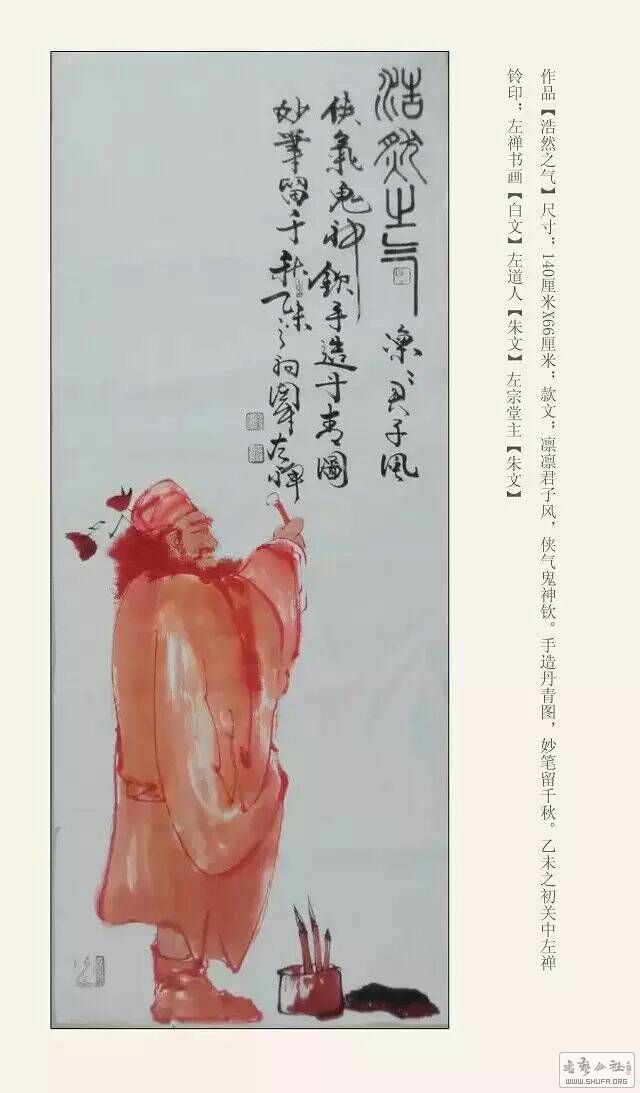 作品【浩然之气】尺寸；140厘米X66厘米；款文；凛凛君子风，侠气鬼神钦。手造丹青图，妙笔留千秋。乙未之初关中左禅
钤印；左禅书画【白文】左道人【朱文】左宗堂主【朱文】
浩然之气
凛〻君子风
侠氣鬼神欽手造丹青圖
妙筆留千秋乙未之初關中左禪
书艺公社
WWW.SHUFA.ORG